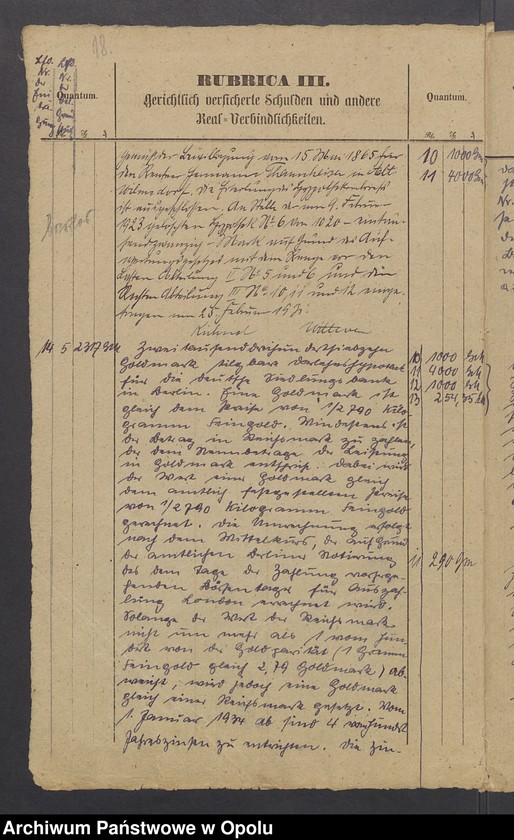 18.
Lfd. Nr. der Eintragung
Lfd. Nr.
Quantum.
RUBRICA III.
Gerichtlich versicherte Schulden und andere
Real=Verbindlichkeiten.
Quantum.
vom 15. 1865 für
den Rentner Hermann in
Wilmersdorf. Die Erteilung des Hypothekenbriefs
ist ausgeschlossen. An Stelle der am 9. Februar
1923 gelöschten Hypothek Nr. 6 von 1020 – eintau-
sendzwanzig – Mark auf Grund des Auf-
wertungsgesetzes mit dem Range vor den
Abteilung II Nr. 5 und 6 und den
Abteilung III Nr. 10, 11 und 12 einge-
tragen am 25. Februar
10 1000
11 4000
14 5 2317
Zweitausenddreihundertsiebzehn
Goldmark tilgbare Darlehnshypothek
für die Deutsche Siedlungsbank
in Berlin. Eine Goldmark ist
gleich dem Preise von 1/2790 Kilo-
gramm Feingold. Mindestens ist
der Betrag in Reichsmark zu zahlen,
der dem Nennbetrage der Leistung
in Goldmark entspricht. Dabei wird
der Wert einer Goldmark gleich
dem amtlich festgestellten Preise
von 1/2790 Kilogramm Feingold
gerechnet. Die Umrechnung erfolgt
nach dem Mittelkurs, der auf Grund
der amtlichen Berliner Notierung
des dem Tage der Zahlung vorherge-
henden Börsentages für Auszah-
lung London errechnet wird.
Solange der Wert der Reichsmark
nicht um mehr als 1 vom Hun-
dert von der Goldparität (1 Gramm
Feingold gleich 2,79 Goldmark) ab-
weicht, wird jedoch eine Goldmark
gleich einer Reichsmark gesetzt. Vom
1. Januar 1934 ab sind 4 vom Hundert
Jahreszinsen zu entrichten. Die Zin-
10 1000
11 4000
12 1000
13 254,35
11 290 Gm
Archiwum Państwowe w Opolu